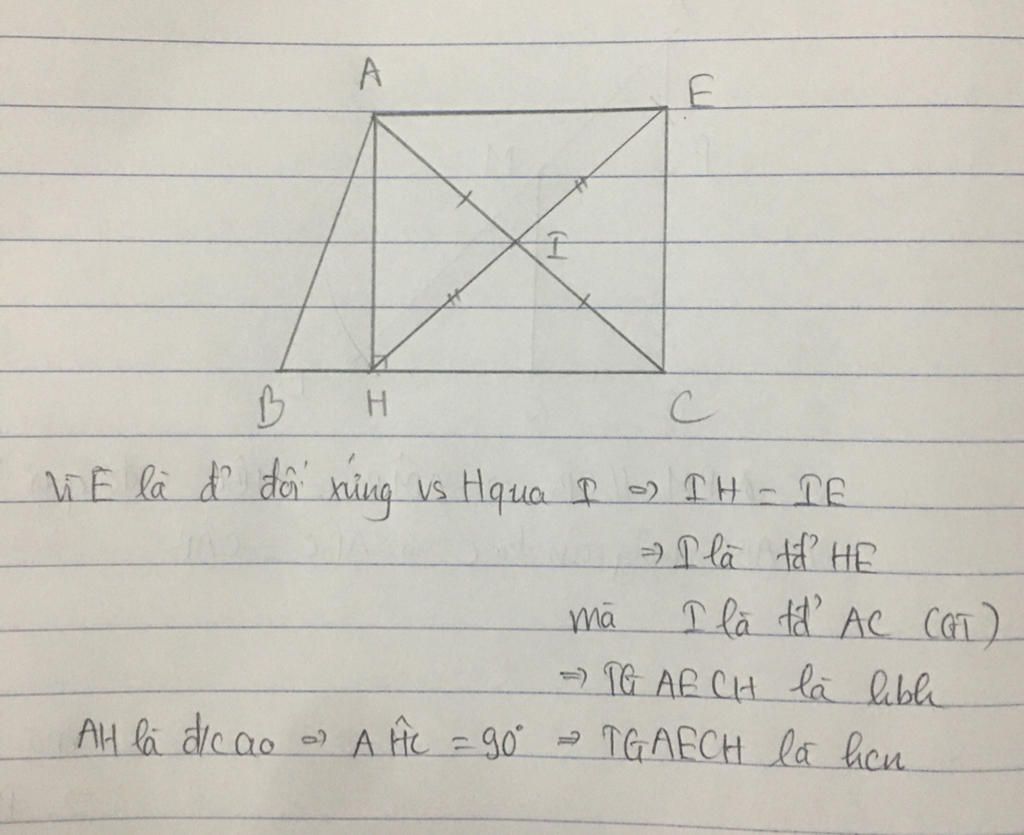 A
E
I
B
H
C
Vì E là đ' đối xứng vs H qua I => IH = IE
=> I là tđ' HE
mà I là tđ' AC (GT)
=> TG AECH là hbh
AH là đ/cao => AĤC = 90° => TGAECH là hcn